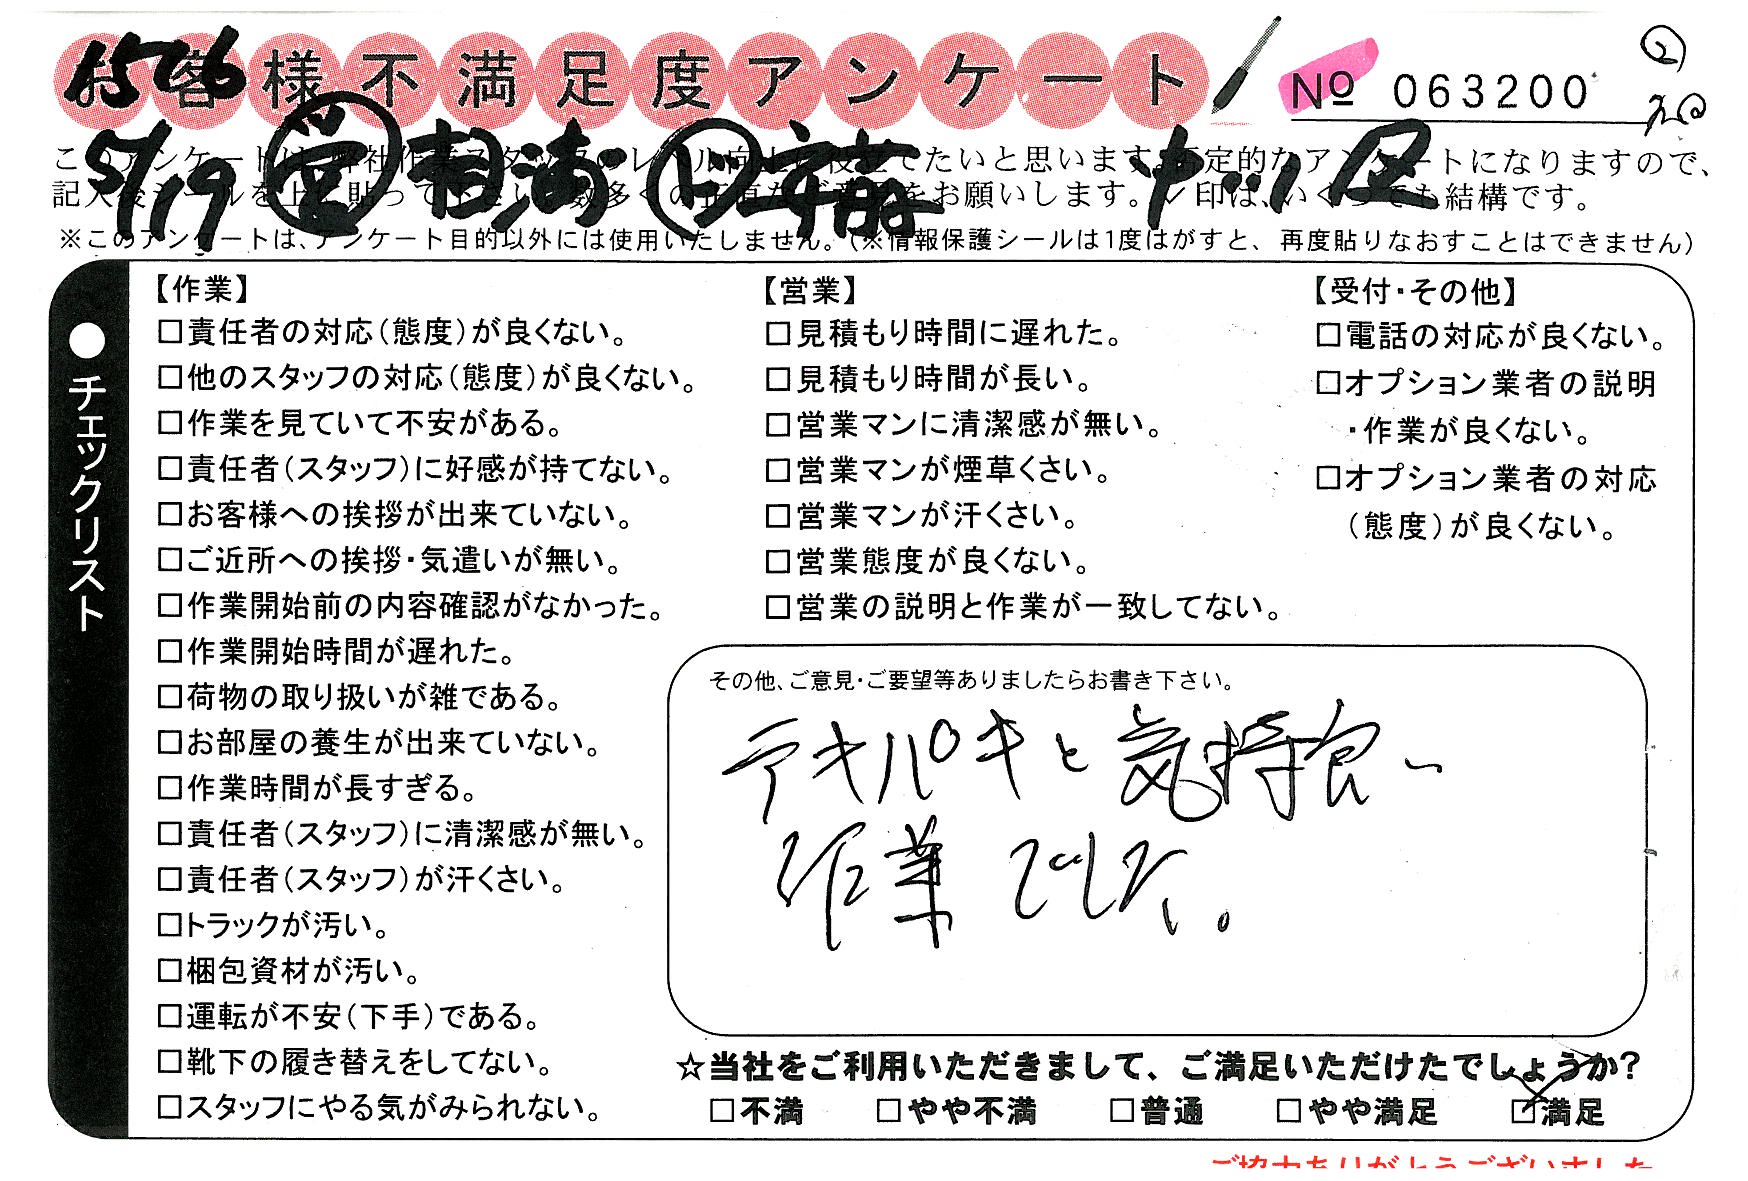 1526
お客様不満足度アンケート
No 063200
5/19 営 相浦 安藤
このアンケートは、弊社作業スタッフのレベル向上に役立てたいと思います。否定的なアンケートになりますので、
記入後シールを上に貼って下さい。数多くの正直なご意見をお願いします。✓印は、いくつでも結構です。
※このアンケートは、アンケート目的以外には使用いたしません。(※情報保護シールは1度はがすと、再度貼りなおすことはできません)
●チェックリスト
【作業】
□責任者の対応(態度)が良くない。
□他のスタッフの対応(態度)が良くない。
□作業を見ていて不安がある。
□責任者(スタッフ)に好感が持てない。
□お客様への挨拶が出来ていない。
□ご近所への挨拶・気遣いが無い。
□作業開始前の内容確認がなかった。
□作業開始時間が遅れた。
□荷物の取り扱いが雑である。
□お部屋の養生が出来ていない。
□作業時間が長すぎる。
□責任者(スタッフ)に清潔感が無い。
□責任者(スタッフ)が汗くさい。
□トラックが汚い。
□梱包資材が汚い。
□運転が不安(下手)である。
□靴下の履き替えをしてない。
□スタッフにやる気がみられない。
【営業】
□見積もり時間に遅れた。
□見積もり時間が長い。
□営業マンに清潔感が無い。
□営業マンが煙草くさい。
□営業マンが汗くさい。
□営業態度が良くない。
□営業の説明と作業が一致してない。
【受付・その他】
□電話の対応が良くない。
□オプション業者の説明
・作業が良くない。
□オプション業者の対応
(態度)が良くない。
その他、ご意見・ご要望等ありましたらお書き下さい。
テキパキと気持良い
作業でした。
☆当社をご利用いただきまして、ご満足いただけたでしょうか?
□不満 □やや不満 □普通 □やや満足 □満足
ご協力ありがとうございました